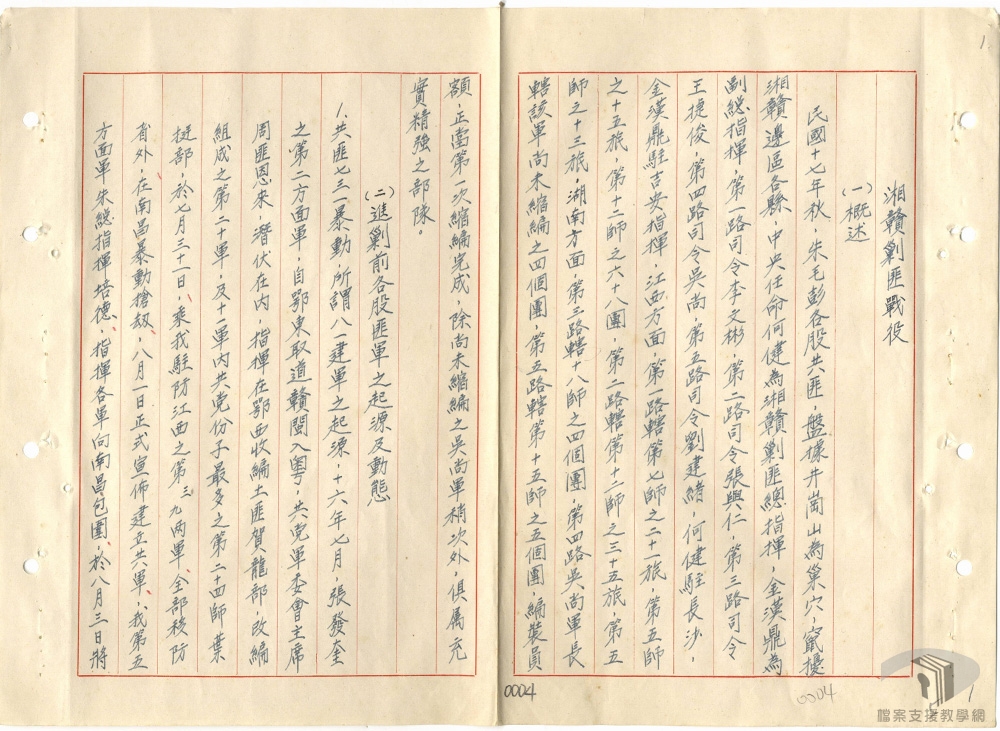 湘贛剿匪戰役
(一)概述
民國十七年秋，朱毛彭各股共匪，盤據井崗山為巢穴，竄擾
湘贛邊區各縣，中央任命何健為湘贛剿匪總指揮，金漢鼎為
副總指揮，第一路司令李文彬，第二路司令張興仁，第三路司令
王捷俊，第四路司令吳尚，第五路司令劉建緒，何健駐長沙，
金漢鼎駐吉安指揮，江西方面，第一路轄第七師之二十一旅，第五師
之十五旅，第十二師之六十八團，第二路轄第十二師之三十五旅，第五
師之十三旅，湖南方面，第三路轄十八師之四個團，第四路吳尚軍長
轄該軍尚未縮編之四個團，第五路轄第十五師之五個團，編裝員
額，正當第一次縮編完成，除尚未縮編之吳尚軍稍次外，俱屬充
實精強之部隊。
(二)進剿前各股匪軍之起源及動態
1.共匪七三一暴動，所謂八一建軍之起源，十六年七月，張發奎
之第二方面軍，自鄂東取道贛閩入粵，共党軍委會主席
周匪恩来，潛伏在內，指揮在鄂西收編土匪賀龍部，改編
組成之第二十軍，及十一軍內共党份子最多之第二十四師葉
挺部，於七月三十一日，乘我駐防江西之第三、九兩軍，全部移防
省外，在南昌暴動搶劫，八月一日正式宣佈建立共軍，我第五
方面軍朱總指揮培德，指揮各軍向南昌包圍，於八月三日將
0004
0004
1
1
檔案支援教學網